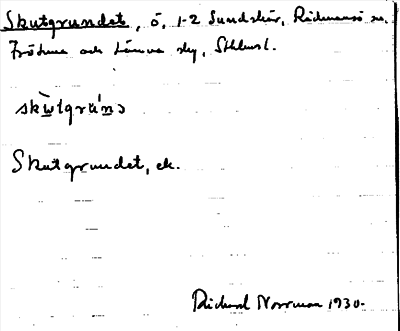 Skutgrundet, ö, 1-2 Sundskär, Rådmansö sn.
Frötuna och Länna skg, Sthlmsl.
skùtgrúnꜿ
Skutgrundet, ek.
Rickard Norrman 1930.